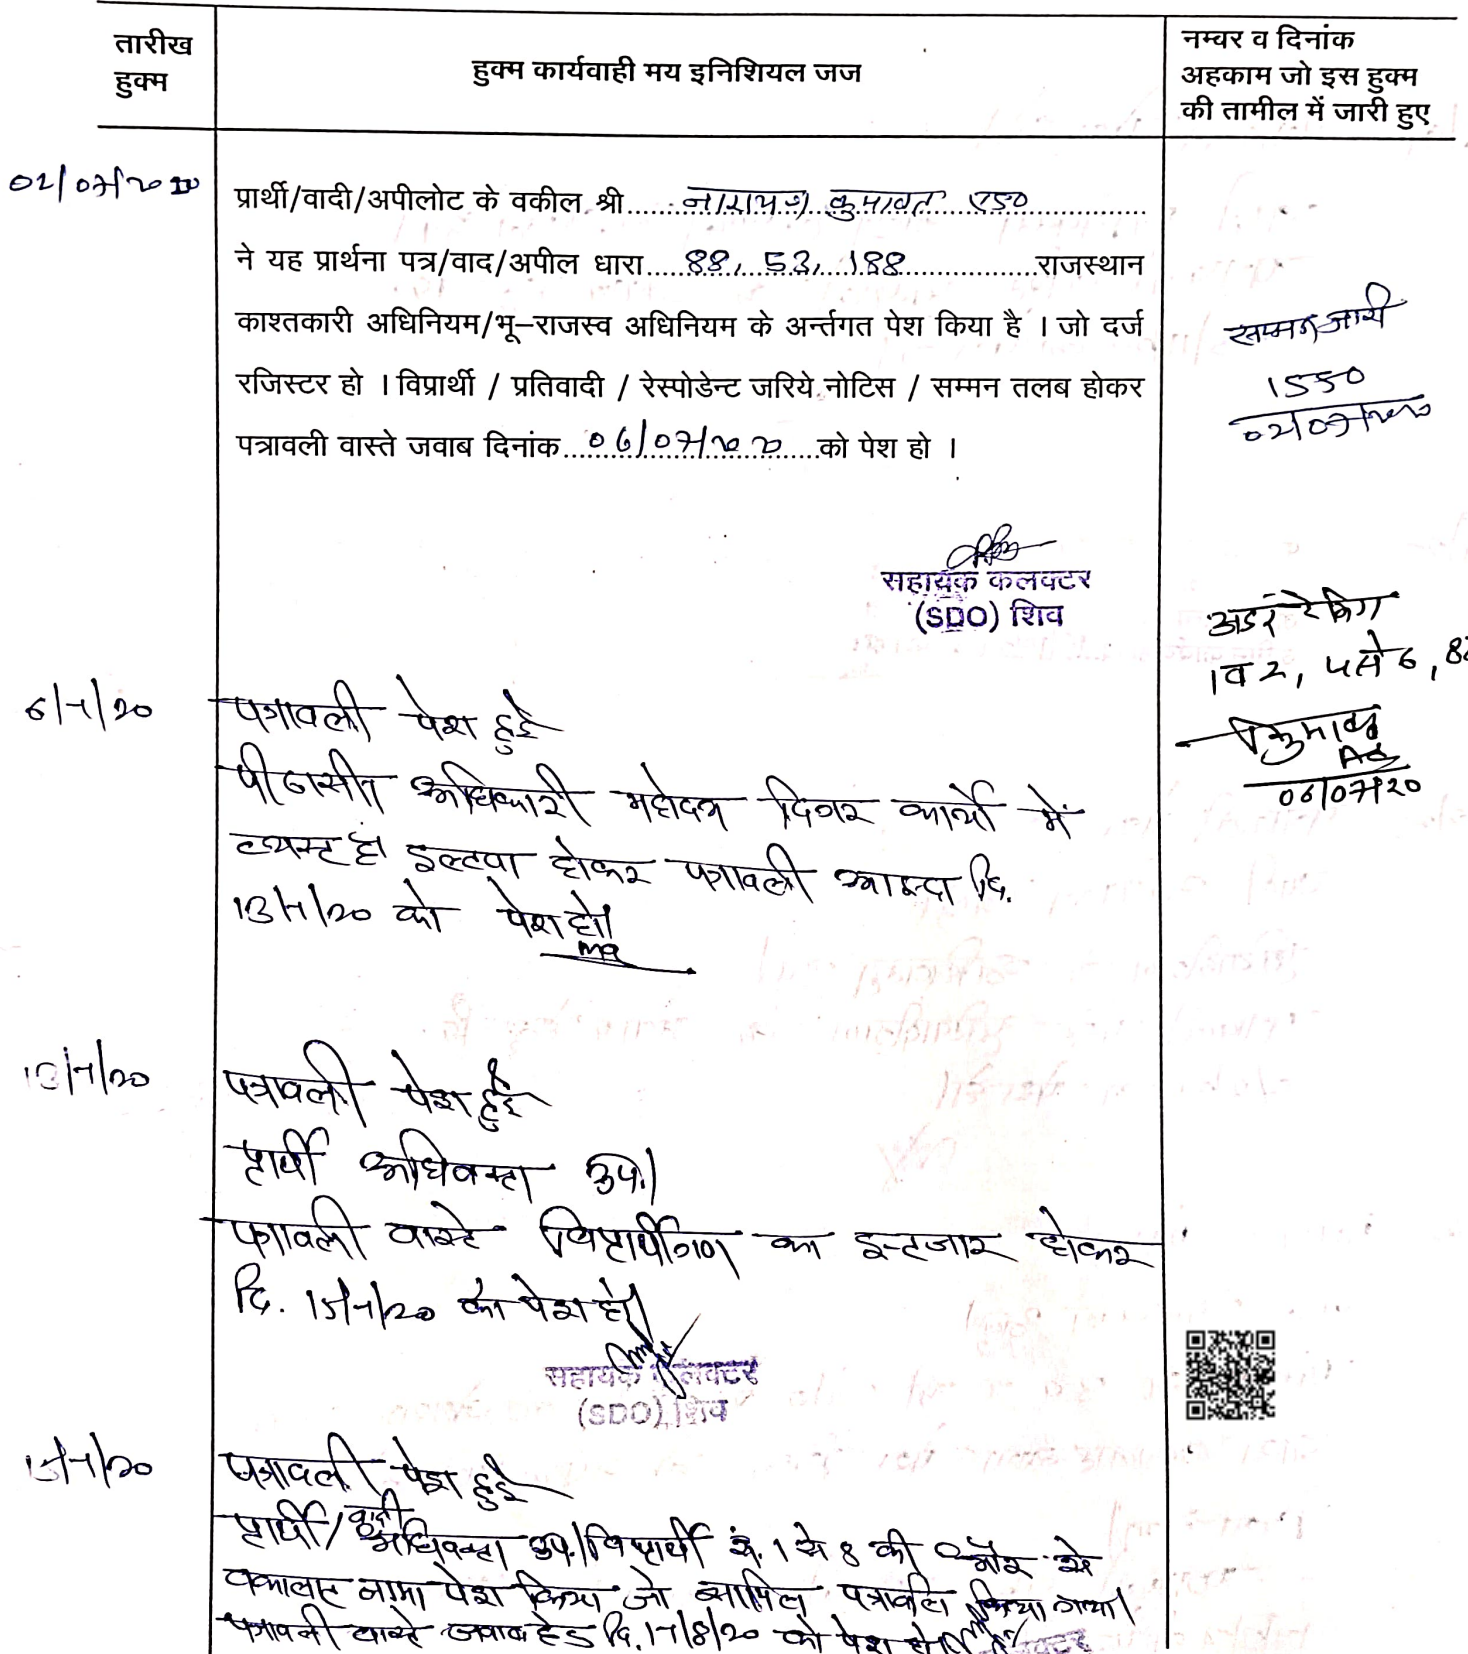 तारीख
हुक्म
हुक्म कार्यवाही मय इनिशियल जज
नम्वर व दिनांक
अहकाम जो इस हुक्म
की तामील में जारी हुए
02/07/2020
प्रार्थी/वादी/अपीलोट के वकील श्री......नारायण कुमावत एड०......
ने यह प्रार्थना पत्र/वाद/अपील धारा....88, 53, 188....राजस्थान
काश्तकारी अधिनियम/भू–राजस्व अधिनियम के अर्न्तगत पेश किया है । जो दर्ज
रजिस्टर हो । विप्रार्थी / प्रतिवादी / रेस्पोडेन्ट जरिये नोटिस / सम्मन तलब होकर
पत्रावली वास्ते जवाब दिनांक...06/07/2020...को पेश हो ।
सम्मन जारी
1550
02/07/2020
सहायक कलक्टर
(SDO) शिव
1 व 2, 4 से 6, 8
06/07/20
6/7/20
पत्रावली पेश हुई
पीठासीन अधिकारी महोदय दिगर कार्यो में
व्यस्ट है इल्टवा होकर पत्रावली आइन्दा दि.
13/7/20 को पेश हो।
13/7/20
पत्रावली पेश हुई
प्रार्थी अधिवक्ता उप.।
पत्रावली वास्टे विप्रार्थीगण का इन्टजार होकर
दि. 15/7/20 को पेश हो।
सहायक कलक्टर
(SDO) शिव
15/7/20
पत्रावली पेश हुई
प्रार्थी/वादी अधिवक्ता उप.। विप्रार्थी सं. 1 से 8 की और से
वकालत नामा पेश किया जो शामिल पत्रावली किया गया।
पत्रावली वास्टे जवाब हेतु दि. 17/8/20 को पेश हो।